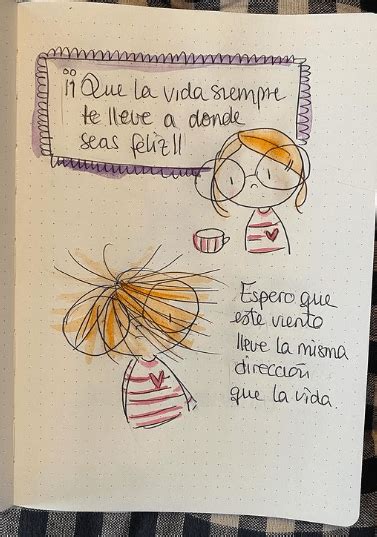 ¡¡Que la vida siempre
te lleve a donde
seas feliz!!
Espero que
este viento
lleve la misma
dirección
que la vida.